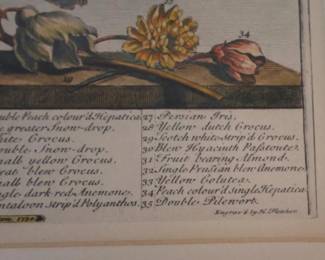 34
ouble Peach colour'd Hepatica.
e greater Snow-drop.
hite Crocus.
ouble Snow-drop.
mall yellow Crocus.
reat blew Crocus.
all blew Crocus.
ngle dark red Anemone.
antaloon strip'd Polyanthos.
27 Persian Iris.
28 Yellow dutch Crocus.
29 Scotch white strip'd Crocus.
30 Blew Hyacinth Passtoute.
31 Fruit bearing Almond.
32 Single Prusian blew Anemone.
33 Yellow Colutea.
34 Peach colour'd single Hepatica.
35 Double Pilewort.
Engrav'd by H. Fletcher